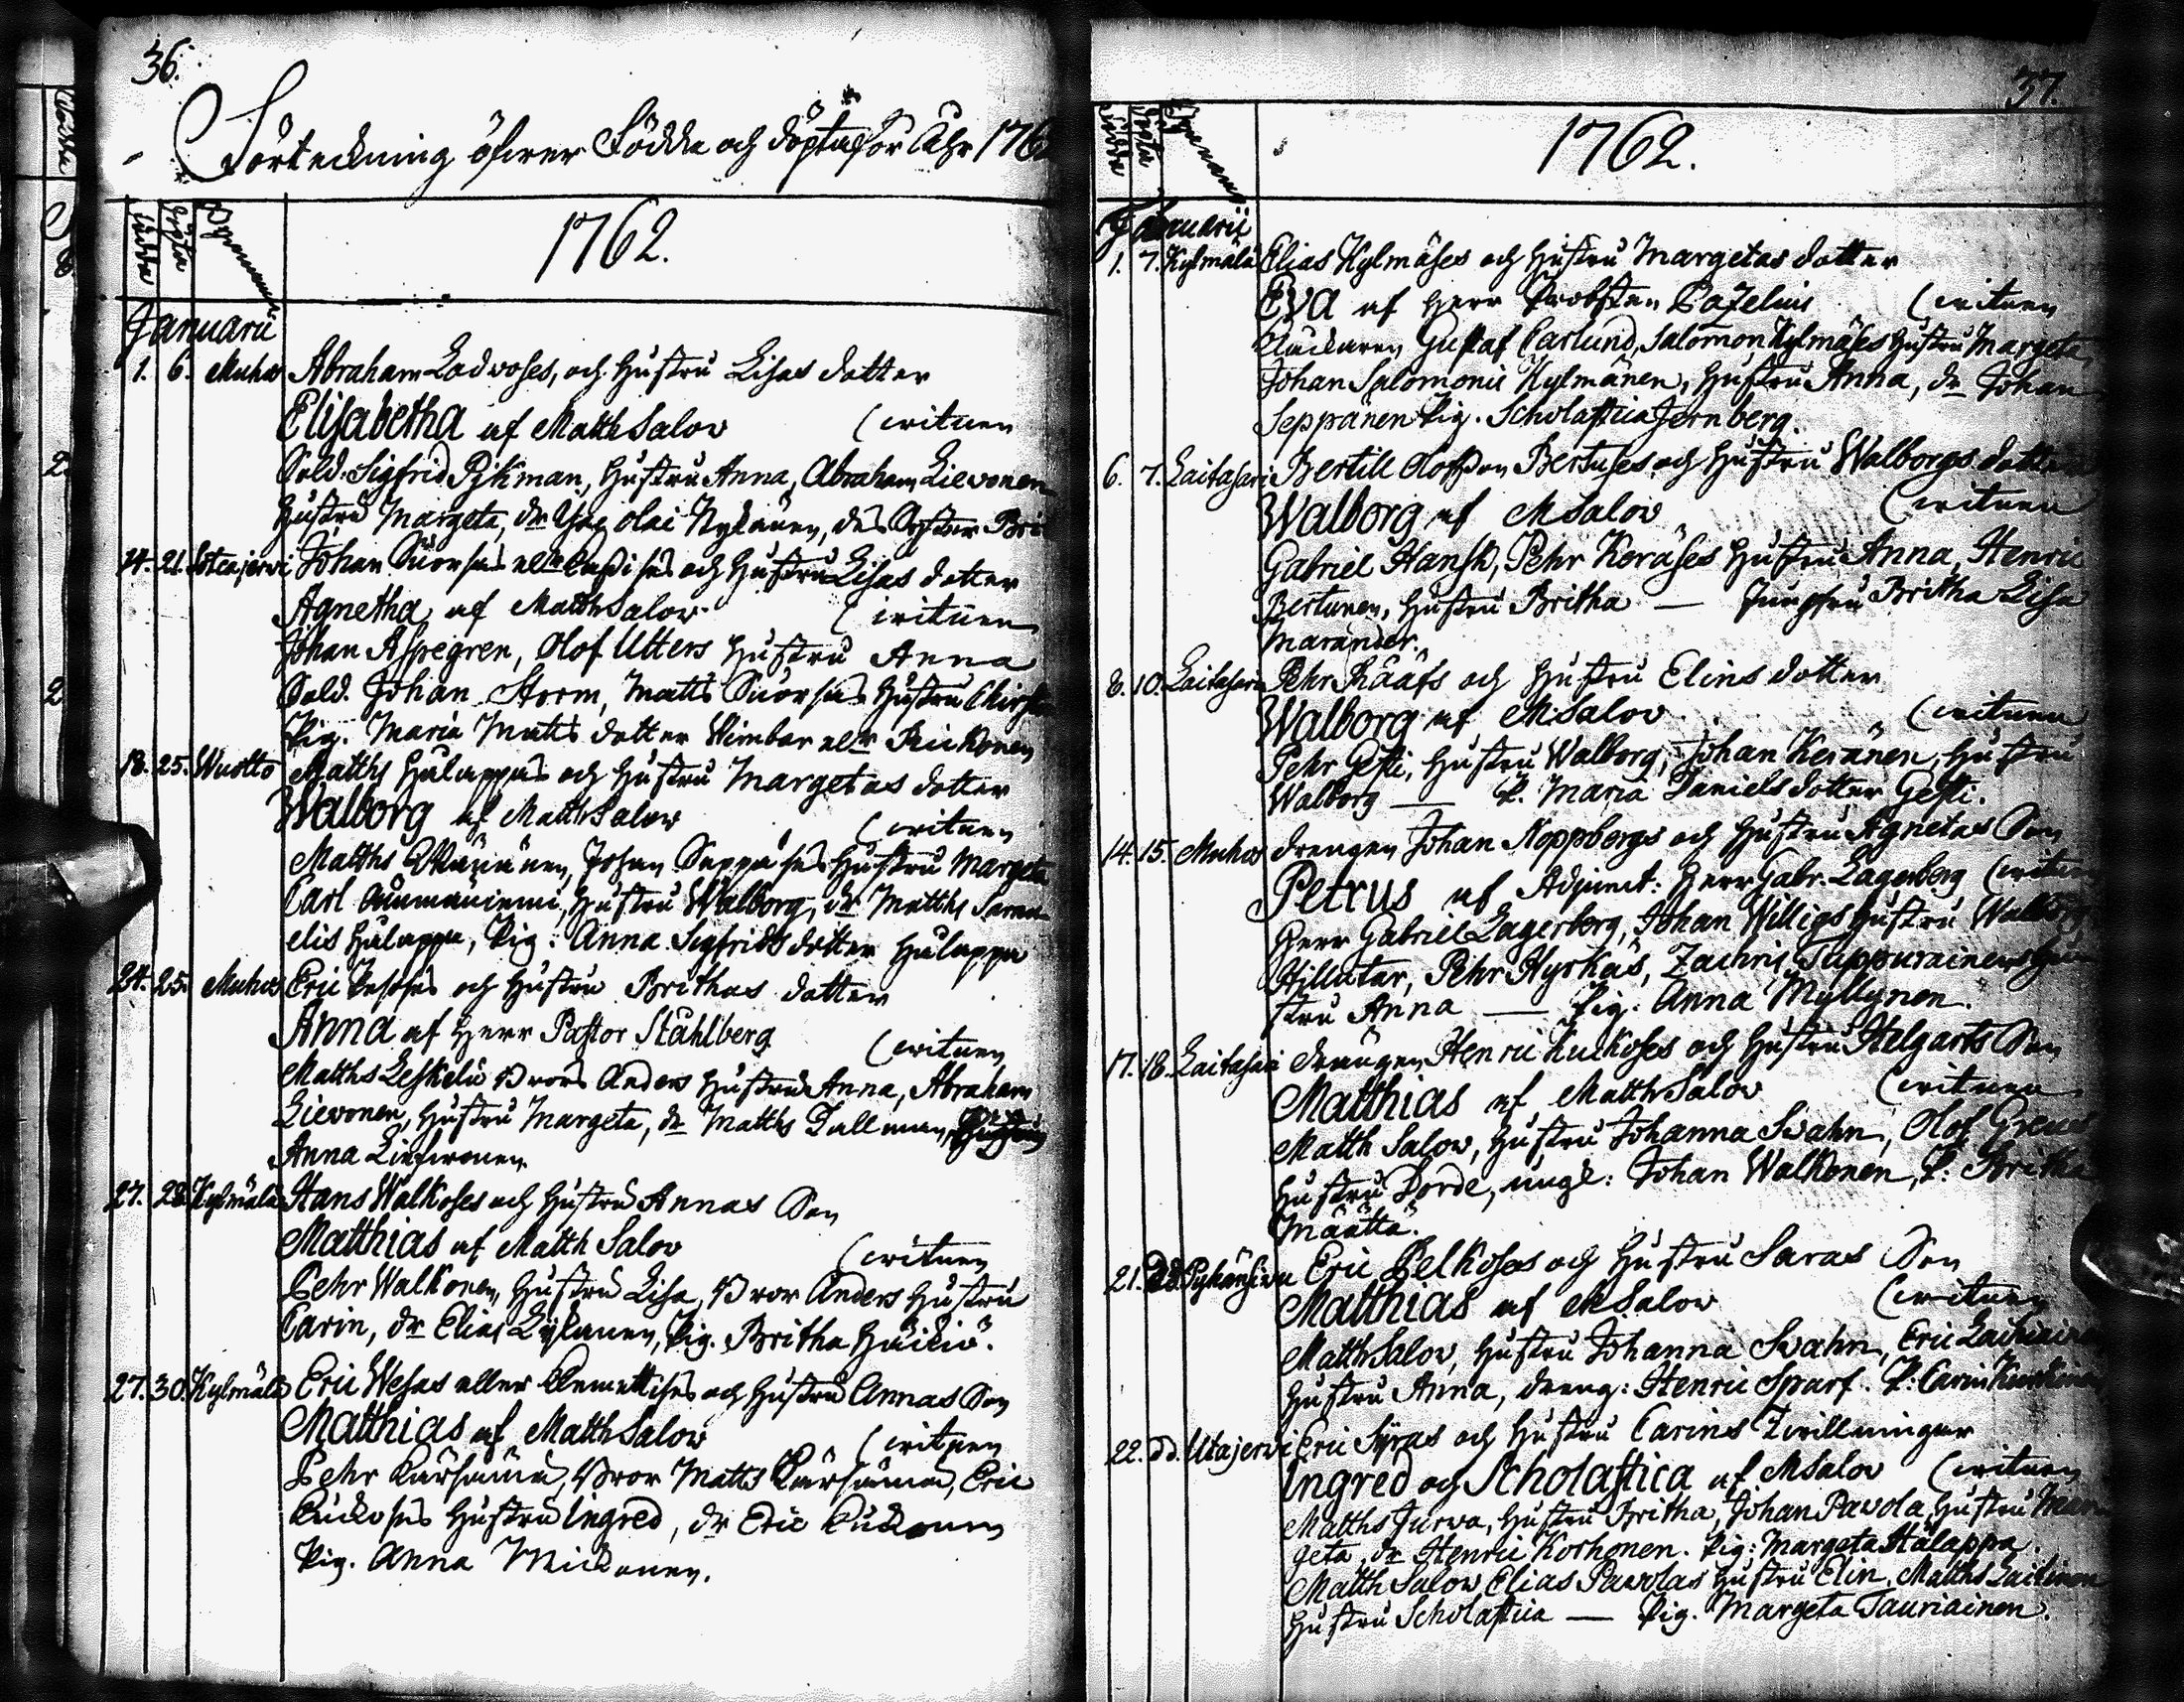 36.
Förteckning öfwer Födde och döpta för Åhr 176
Födde
Döpta
Byanamn
1762.
Januarii
1. 6. Muhos Abraham Lodvoses, och Hustru Lisas dotter
Elisabetha af Matth Salov (witnen
Sold. Sigfrid Pijkman, Hustru Anna, Abraham Lievonen
Hustru Margeta, dr olai Nykänen, des Syster Bri
14. 21. Johan och Hustru Lisas dotter
Agnetha af Matth Salov (witnen
Johan Aspegren, Olof Utters Hustru Anna
Sold. Johan Storm, Matts Hustru
Pig. Maria Matts dotter
18. 25. Wuotto Matths Hulappas och Hustru Margetas dotter
Walborg af Matth Salow (witnen
Matths Johan Seppäses Hustru Margeta
Carl Hustru Walborg, dr Matths Samu
elis Hulappa, Pig: Anna Sigfrids dotter Hulappa
24. 25. Muhos Eric och Hustru Brithas dotter
Anna af Herr Pastor Ståhlberg (witnen
Matths Leskelä Bror Anders Hustru Anna, Abraham
Lievonen, Hustru Margeta, dr Matths Tallman,
Anna
27. 28. Kylmälä Hans Walkoses och Hustru Annas Son
Matthias af Matth Salov (witnen
Pehr Walkonen, Hustru Lisa, Bror Anders Hustru
Carin, dr Elias Pig. Britha Häikiö.
27. 30. Kylmälä Eric Wesas eller Clemettises och Hustru Annas Son
Matthias af Matth Salow (witnen
Pehr Kärsämä, Bror Matts Kärsämä, Eric
Kuckoses Hustru Ingred, dr Eric Kuckonen
Pig. Anna Mickonen.
37.
Födde
Döpta
Byanamn
1762.
Januarii
1. 7. Kylmälä Elias Kylmäses och Hustru Margetas dotter
Eva af Herr Probsten Bazelius (witnen
Gustaf Carlund, Salomon Kylmäses Hustru Margeta,
Johan Salomonis Kylmänen, Hustru Anna, dr Johan
Seppänen Pig. Scholastica Jernberg.
6. 7. Laitasari Bertill Olofson Bertuses och Hustru Walborgs dotter
Walborg af M Salov (witnen
Gabriel Hansk, Pehr Keräses Hustru Anna, Henric
Bertunen, Hustru Britha — Jungfru Britha Lisa
Marander.
8. 10. Laitasari Pehr Rääfs och Hustru Elins dotter
Walborg af M Salov (witnen
Pehr Gesti, Hustru Walborg, Johan Keränen, Hustru
Walborg — P. Maria Daniels dotter Gesti.
14. 15. Muhos drengen Johan Noppbergs och Hustru Agnetas Son
Petrus af Adjunct: Herr Gabr. Lagerberg (witnen
Herr Gabriel Lagerberg, Johan Willigs Hustru Walborg
Hjllutar, Pehr Hyrkäs, Zachris Tuppurainens Hu
stru Anna — Pig: Anna Myllynen.
17. 18. Laitasari drängen Henric Kuckoses och Hustru Helgarts Son
Matthias af Matth Salov (witnen
Matth Salov, Hustru Johanna Svahn, Olof
Hustru Dorde, ungk: Johan Walkonen, P: Britha
Määttä.
21. 22. Pyhänsivu Eric Pelkoses och Hustru Saras Son
Matthias af M Salov (witnen
Matth Salov, Hustru Johanna Svahn, Eric
Hustru Anna, dreng: Henric Sparf. P: Carin
22. dd. Utajervi Eric Syras och Hustru Carins Twillingar
Ingred och Scholastica af M Salov (witnen
Matths Jurva, Hustru Britha, Johan Pavola, Hustru Mar
geta, dr Henric Korhonen. Pig: Margeta Hulappa.
Matth Salow, Elias Pavolas Hustru Elin, Matths Laitinen
Hustru Scholastica — Pig. Margeta Tauriainen.